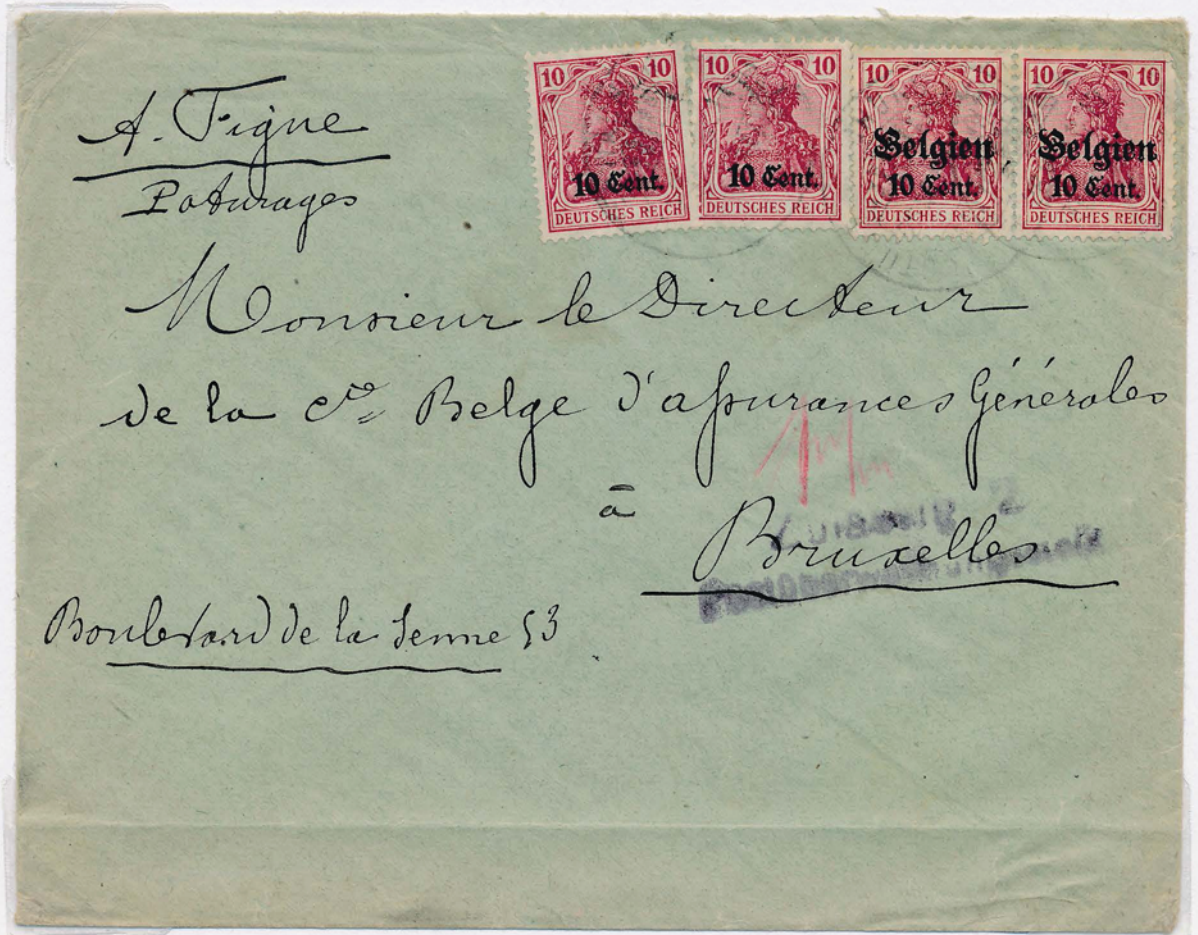 A. Figue
Paturages
10 10
10 Cent.
DEUTSCHES REICH
10 10
10 Cent.
DEUTSCHES REICH
10 10
Belgien
10 Cent.
DEUTSCHES REICH
10 10
Belgien
10 Cent.
DEUTSCHES REICH
Monsieur le Directeur
de la Cie Belge d'assurances Générales
à
Bruxelles
Boulevard de la Senne 53